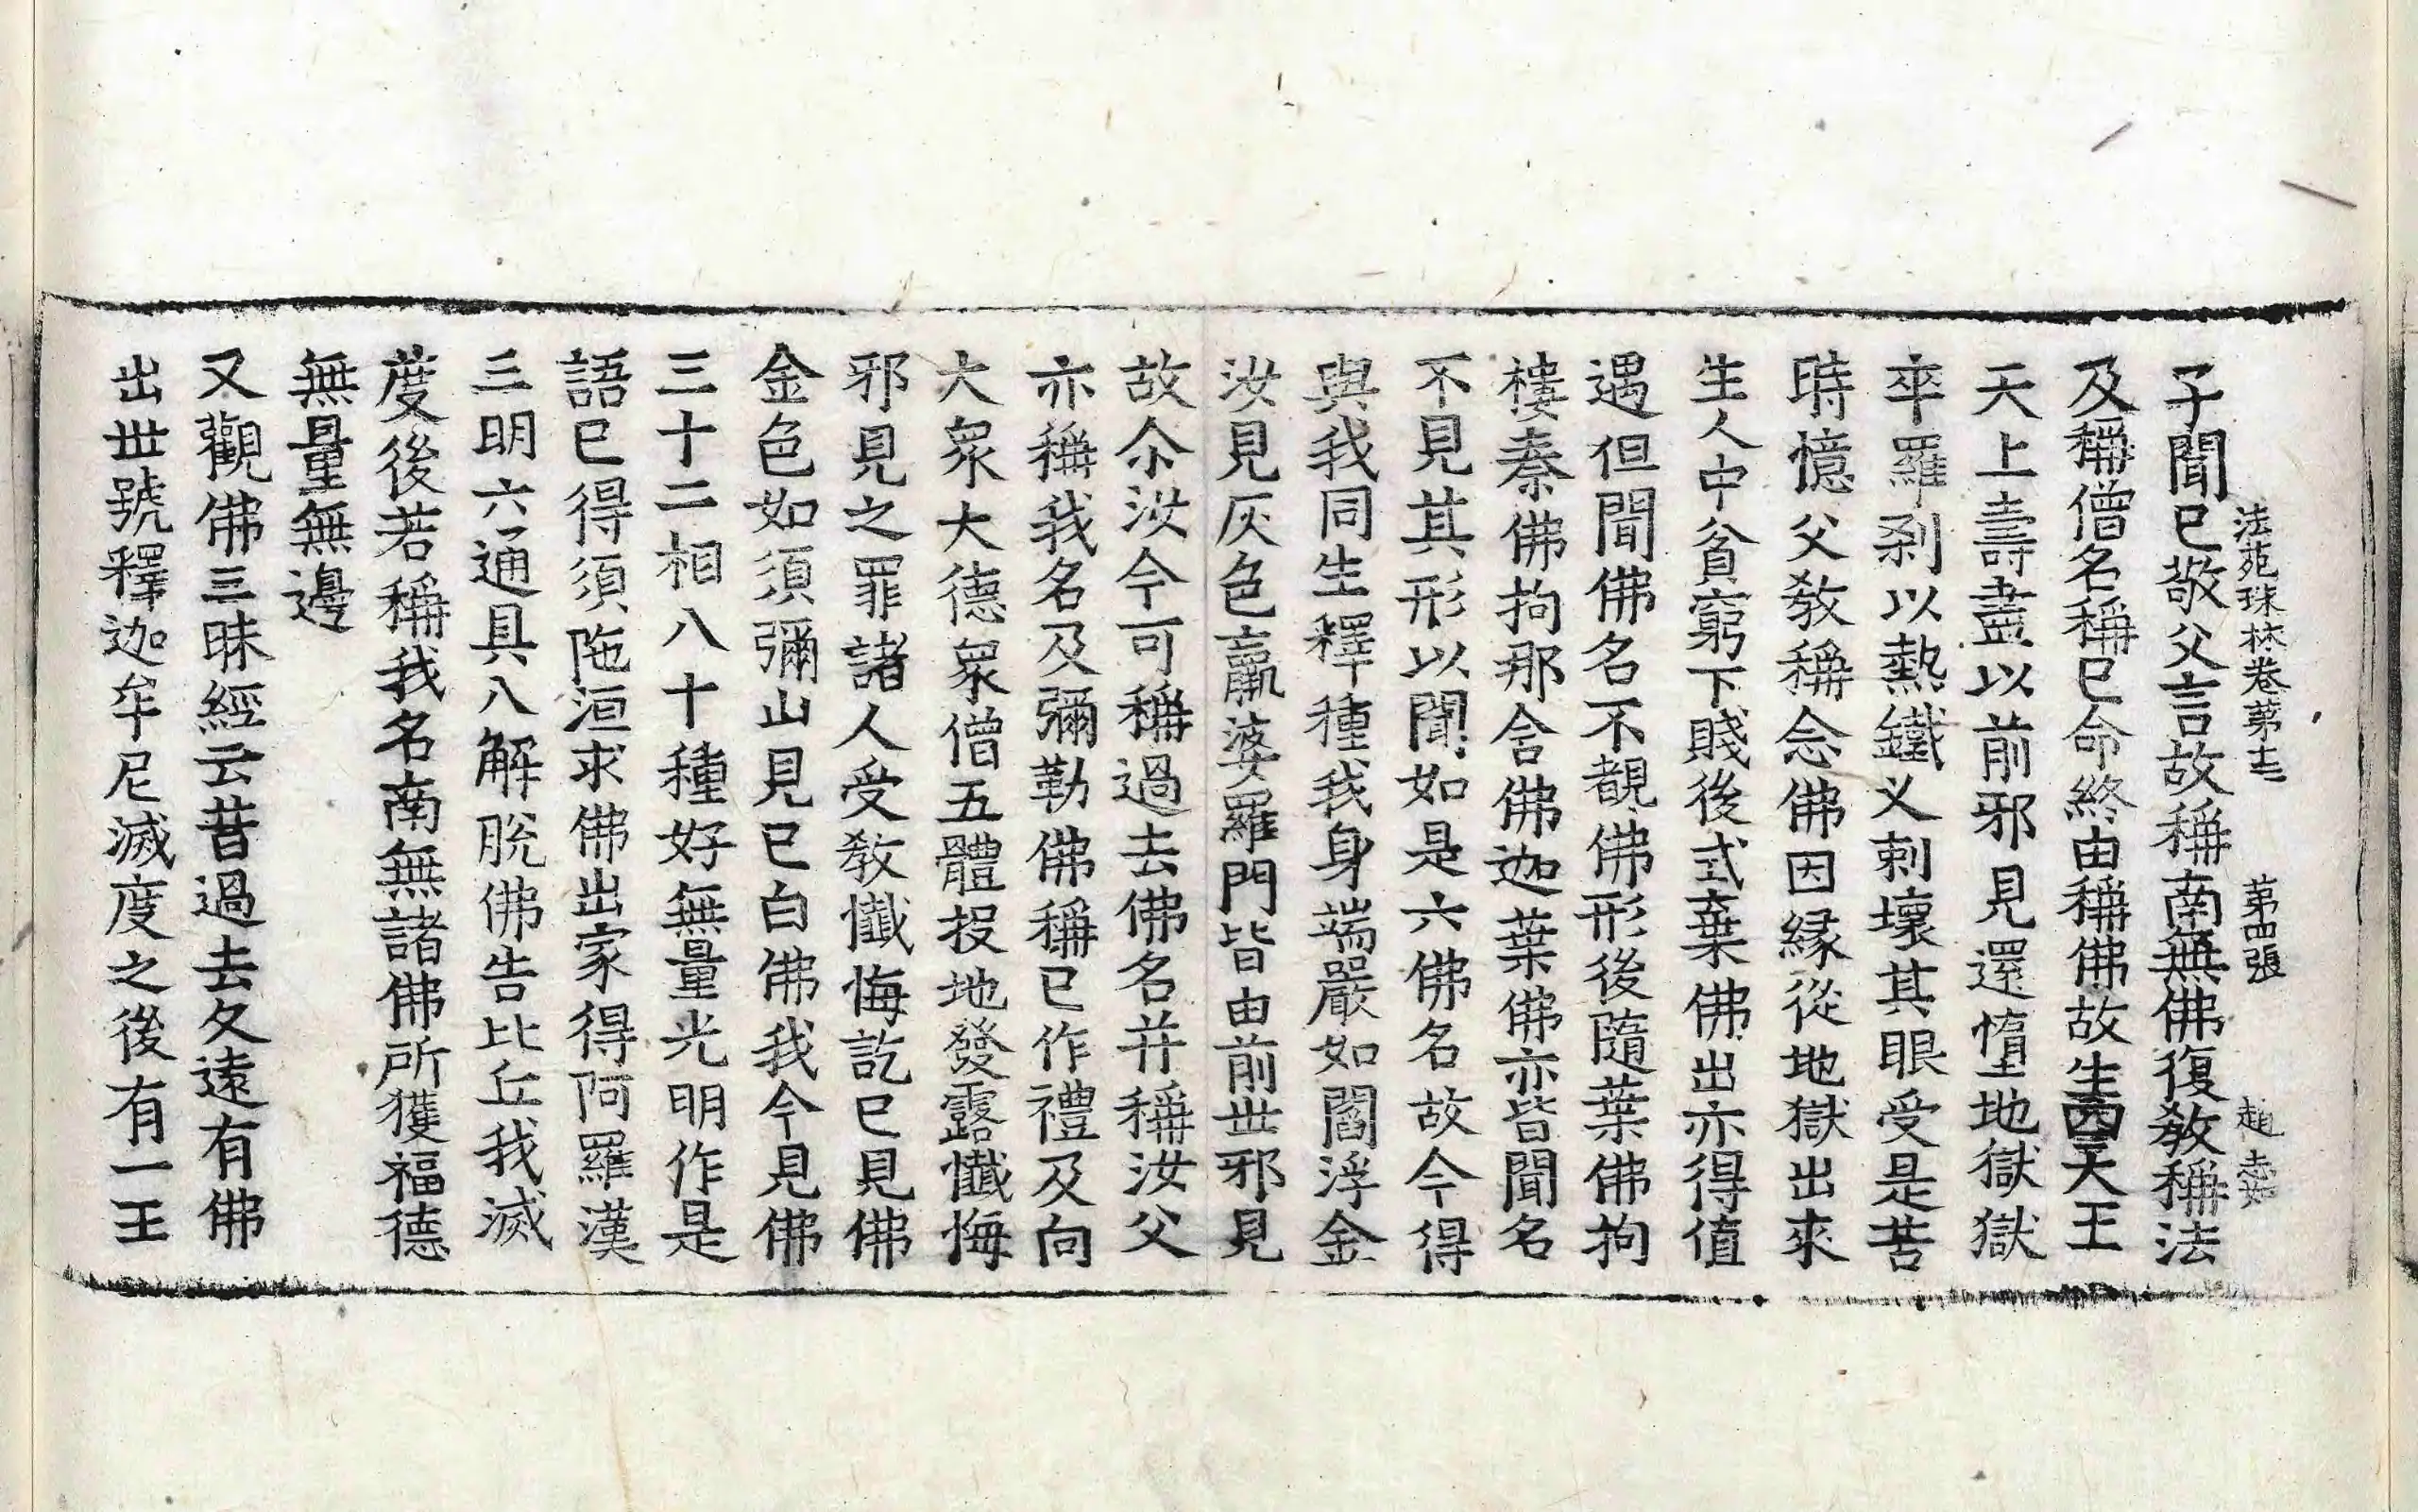 法苑珠林卷苐十三　苐四張　趙
子聞已敬父言故稱南無佛復敎稱法
及稱僧名稱已命終由稱佛故生四天王
天上壽盡以前邪見還惰地獄獄
卒羅刹以熱鐵义刺壞其眼受是苦
時憶父敎稱念佛因緣從地獄出來
生人中貧窮下賤後式棄佛出亦得值
遇但聞佛名不覩佛形後隨葉佛拘
樓秦佛拘那含佛迦葉佛亦皆聞名
不見其形以聞如是六佛名故今得
與我同生釋種我身端嚴如閻浮金
汝見灰色羸婆羅門皆由前世邪見
故尒汝今可稱過去佛名并稱汝父
亦稱我名及彌勒佛稱已作禮及向
大衆大德衆僧五體投地發露懺悔
邪見之罪諸人受敎懺悔訖已見佛
金色如須彌山見已白佛我今見佛
三十二相八十種好無量光明作是
語已得須陁洹求佛出家得阿羅漢
三明六通具八解脫佛告比丘我滅
度後若稱我名南無諸佛所獲福德
無量無邊
又觀佛三昧經云昔過去久遠有佛
出世號釋迦牟尼滅度之後有一王